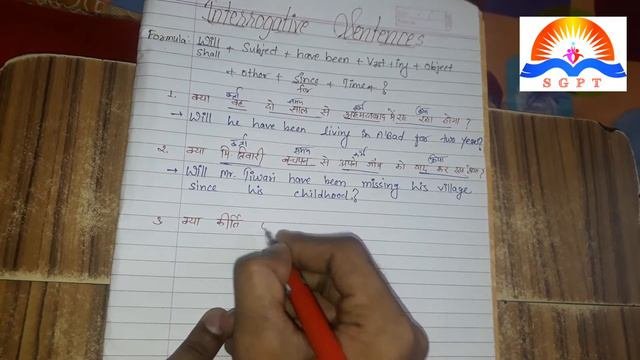 Interrogative Sentences
SGPT
Formula: Will
shall + Subject + have been + V1st + ing + object
+ other + since
for + Time + ?
कर्ता समय कर्म क्रिया
1. क्या वह दो साल से अहमदाबाद में रह रहा होगा ?
→ Will he have been living in A'Bad for two year?
कर्ता समय कर्म क्रिया
2. क्या मि. तिवारी बचपन से अपने गाँव को याद कर रहा होगा ?
→ Will Mr. Tiwari have been missing his village
since his childhood?
3. क्या कीर्ति